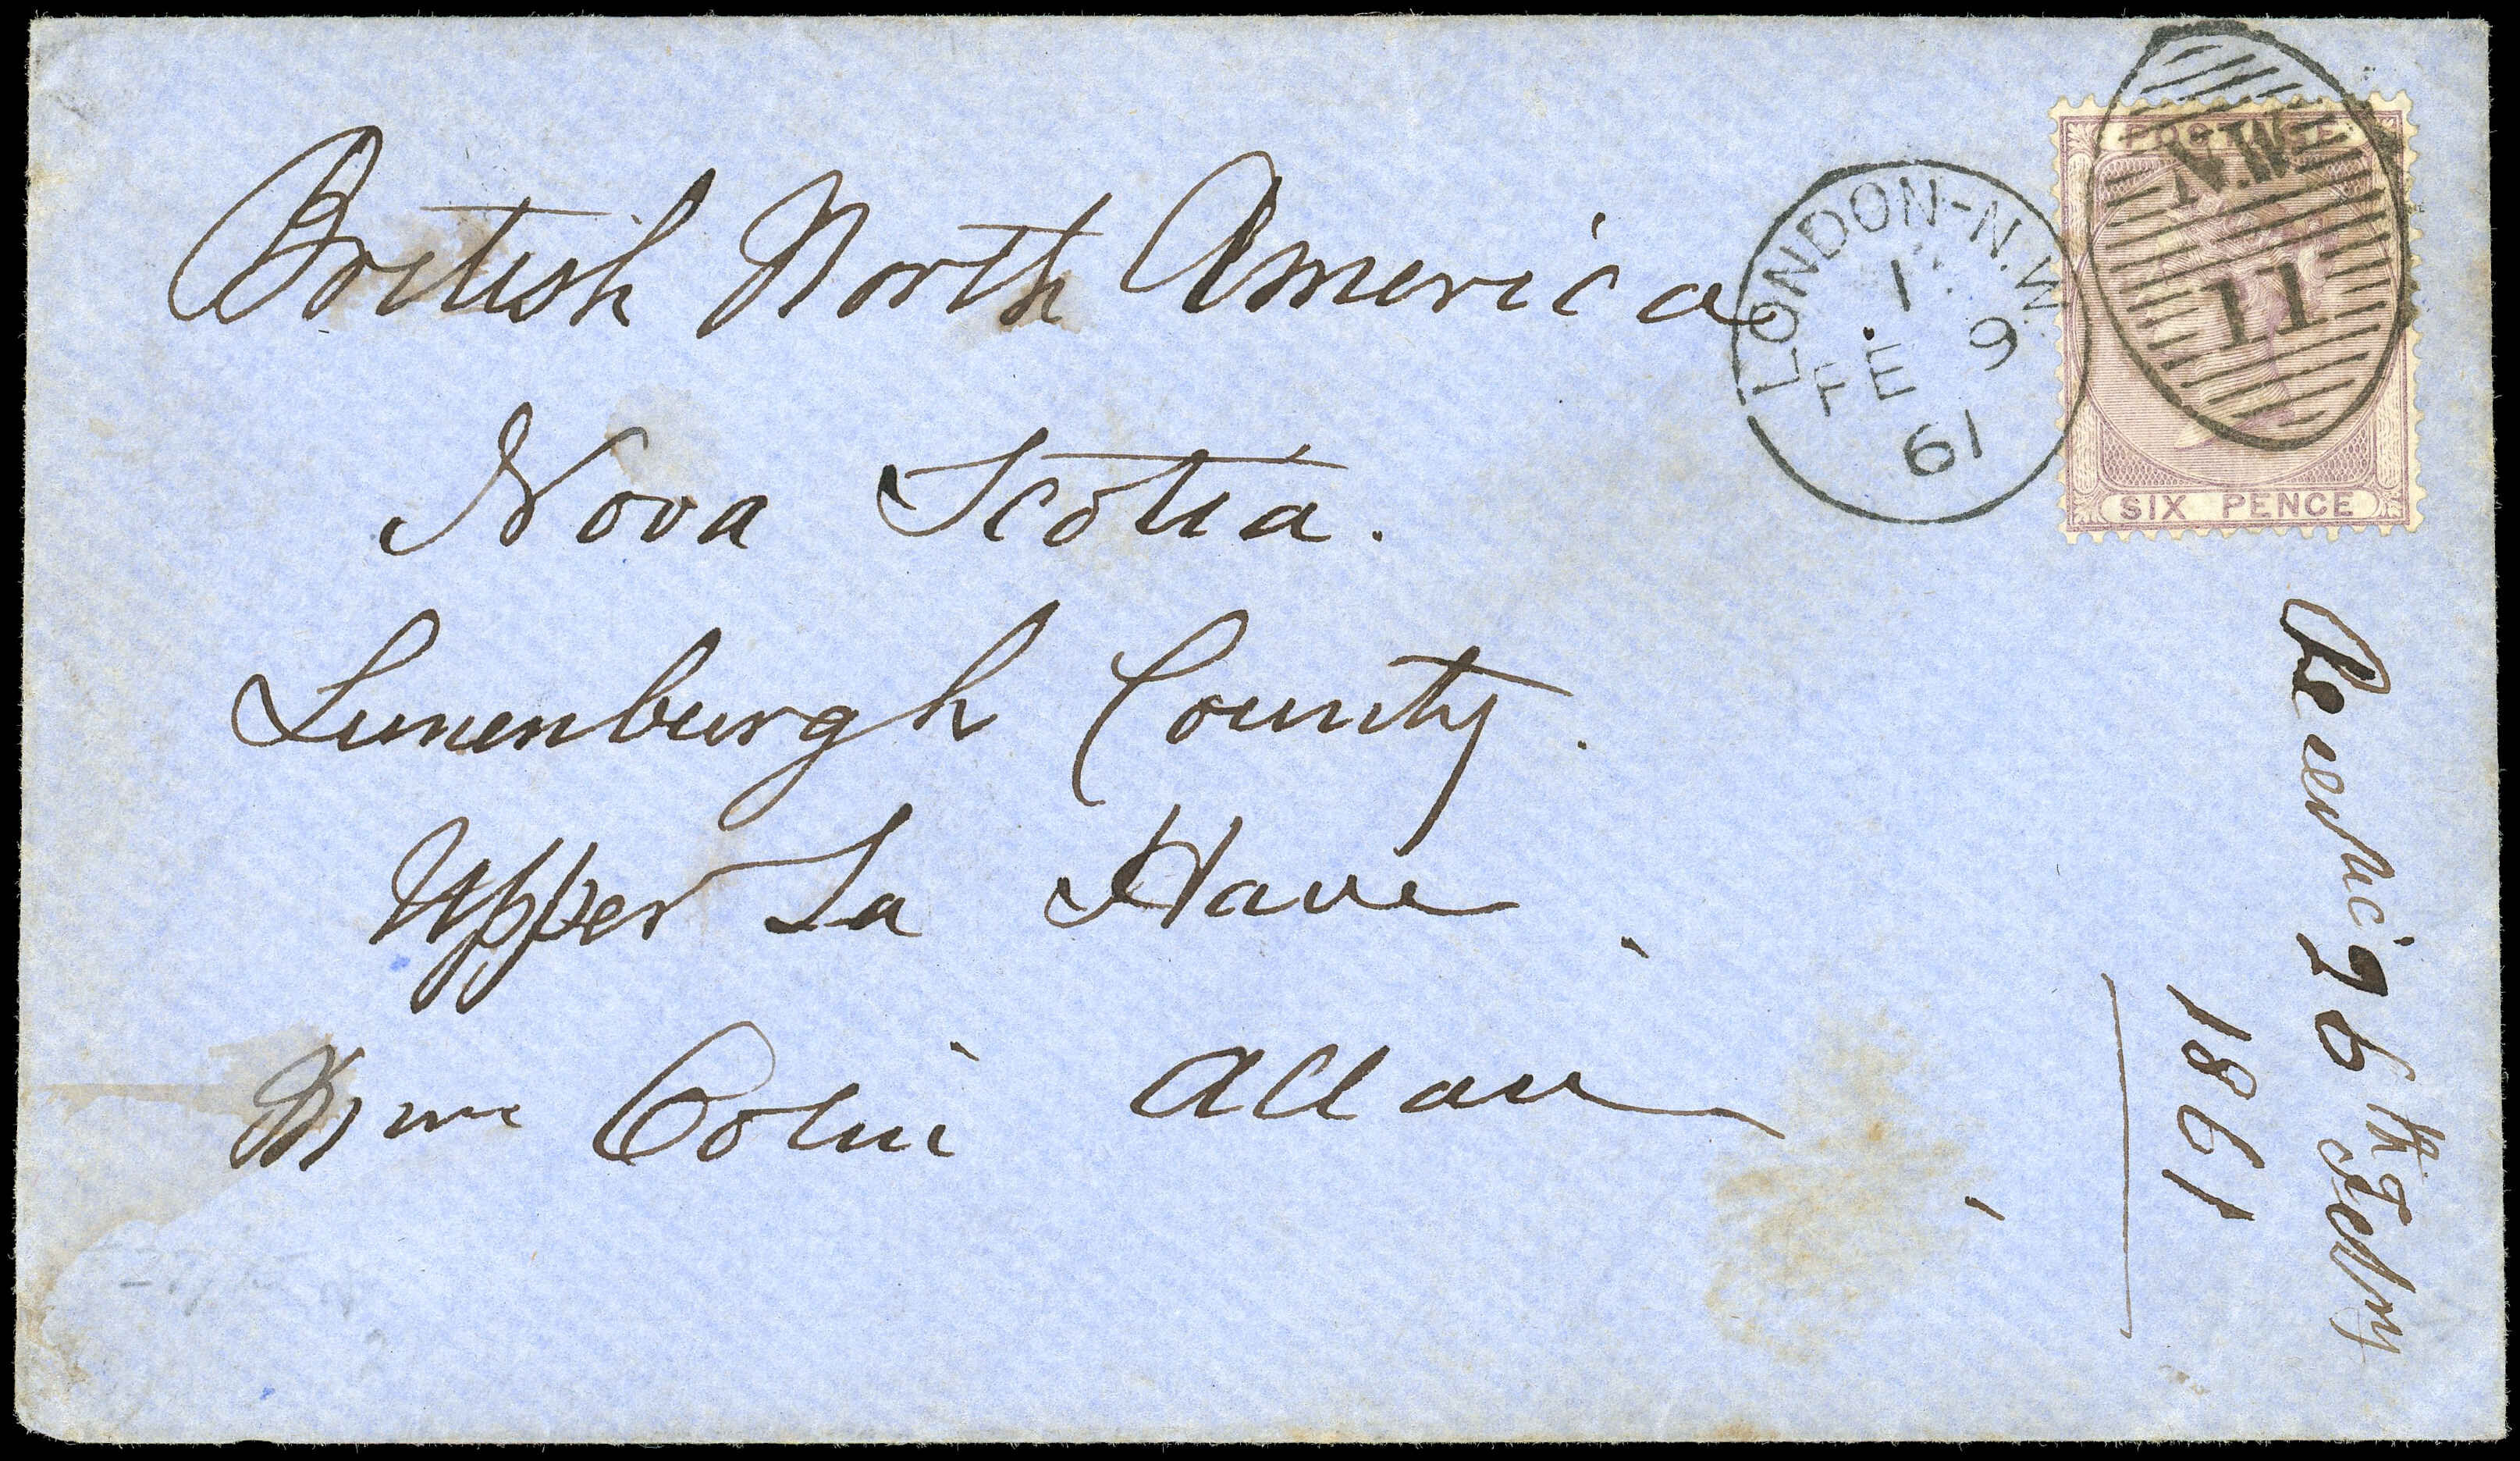 British North America
Nova Scotia.
Lunenburgh County.
Upper La Have,
Colin Allan,
LONDON-N.W.
1
FE 9
61
POSTAGE
N.W.
11
SIX PENCE
26th Febry
1861